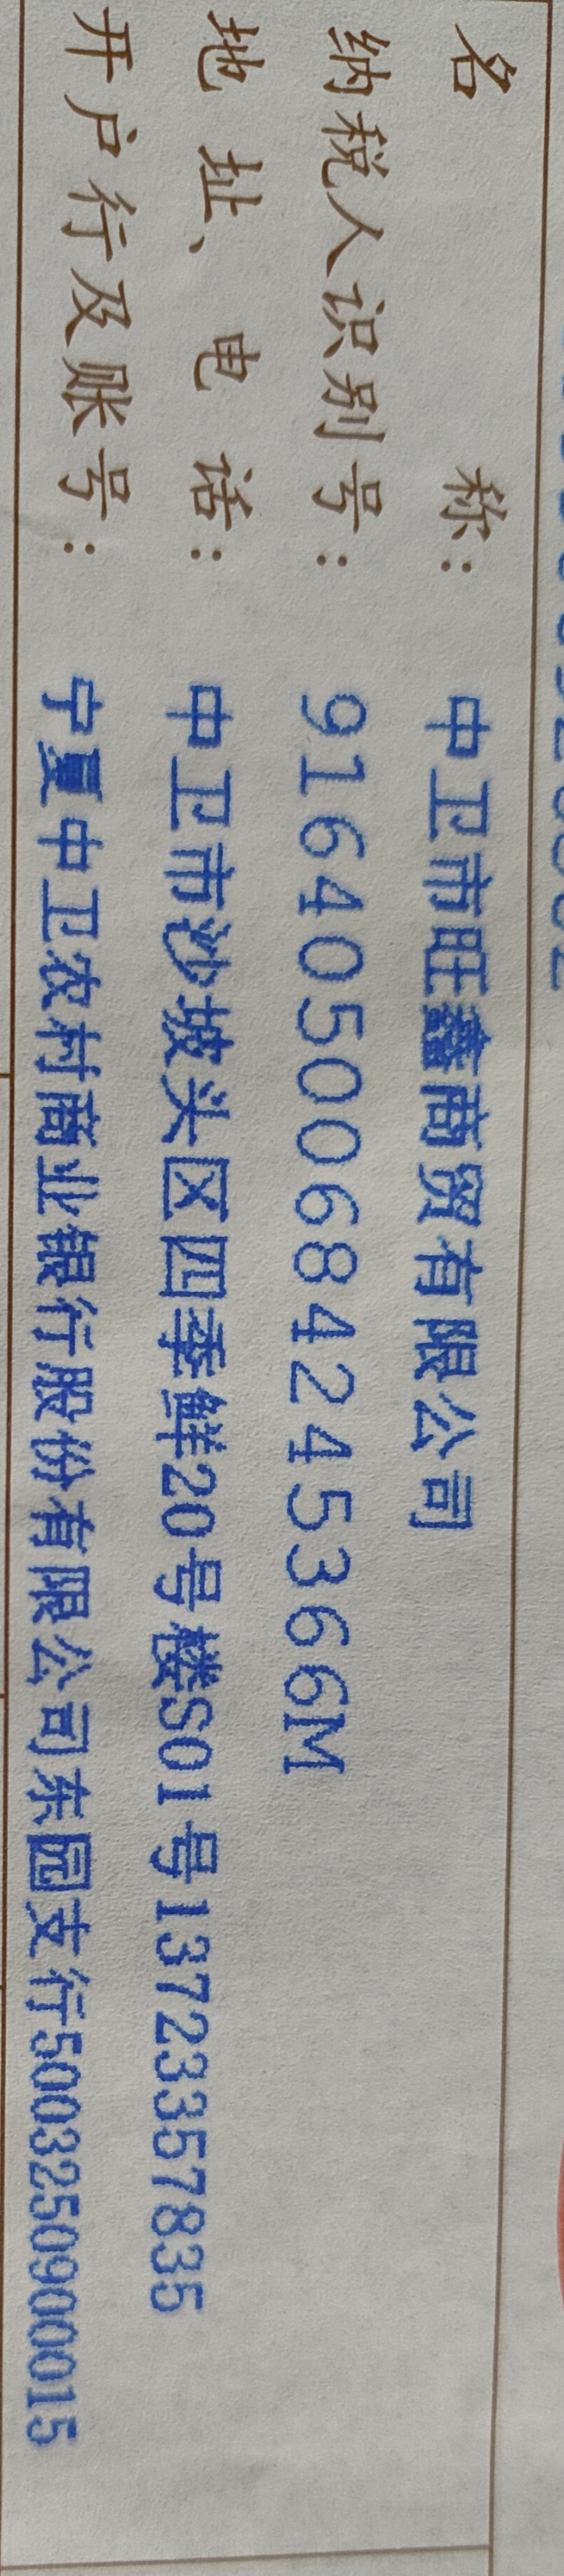 名称：中卫市旺鑫商贸有限公司
纳税人识别号：91640500684245366M
地址、电话：中卫市沙坡头区四季鲜20号楼S01号13723357835
开户行及账号：宁夏中卫农村商业银行股份有限公司东园支行5003250900015